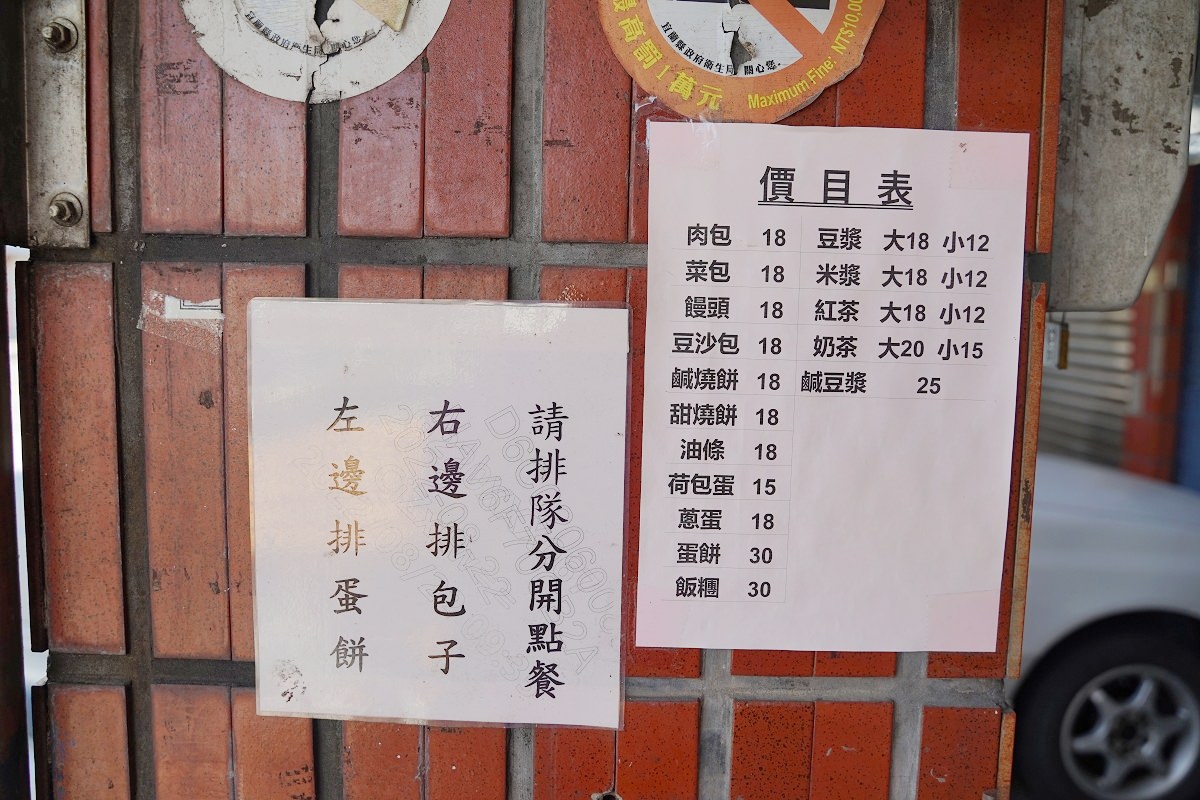 宜蘭縣政府衛生局 關心您.
最高罰1萬元
Maximum Fine: NT$10,00
宜蘭縣政府衛生局 關心您.
價目表
肉包 18 豆漿 大18 小12
菜包 18 米漿 大18 小12
饅頭 18 紅茶 大18 小12
豆沙包 18 奶茶 大20 小15
鹹燒餅 18 鹹豆漿 25
甜燒餅 18
油條 18
荷包蛋 15
蔥蛋 18
蛋餅 30
飯糰 30
請排隊分開點餐
右邊排包子
左邊排蛋餅